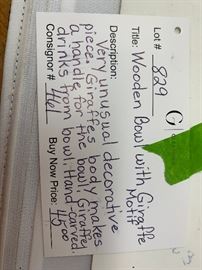 Lot # 829
Title: Wooden Bowl with Giraffe
Motif
Description:
Very unusual decorative
piece. Giraffes body makes
a handle for the bowl. Giraffe
drinks from bowl. Hand-carved.
Consignor #
Buy Now Price: 45.00